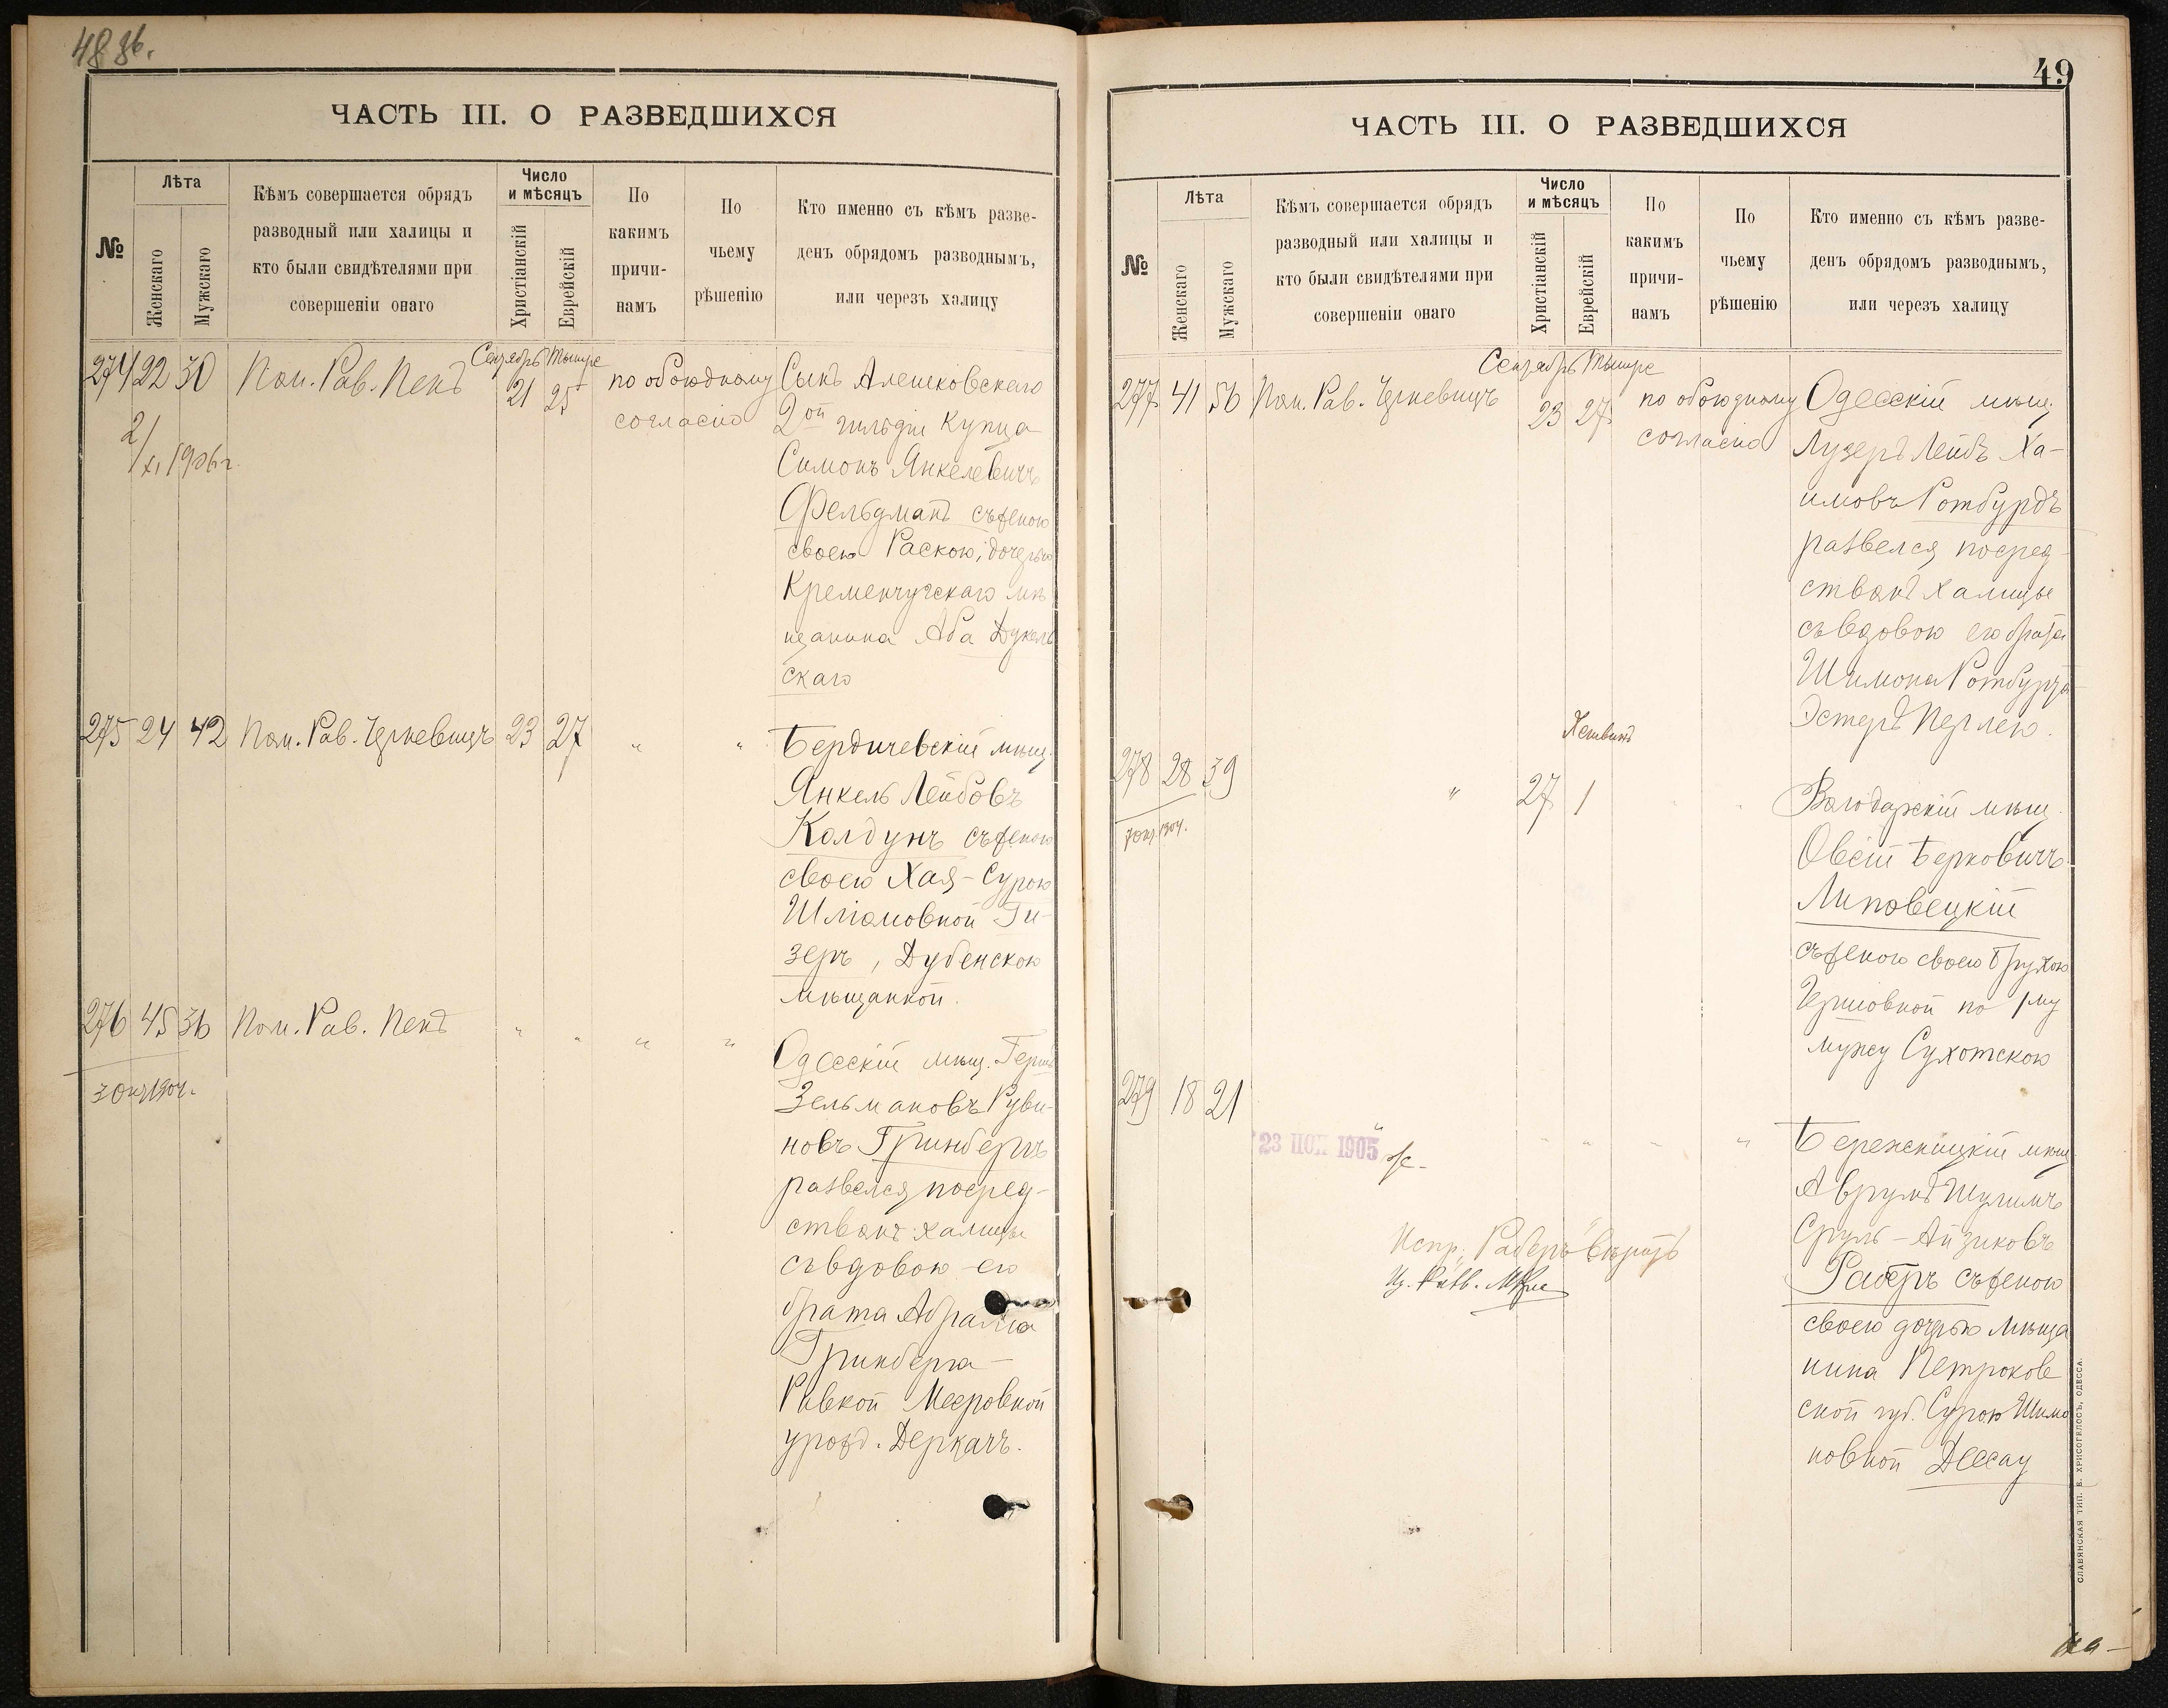 48 об.
ЧАСТЬ III. О РАЗВЕДШИХСЯ
№
Лѣта
Женскаго
Мужскаго
Кѣмъ совершается обрядъ
разводный или халицы и
кто были свидѣтелями при
совершеніи онаго
Число
и мѣсяцъ
Христіанскій
Еврейскій
По
какимъ
причи-
намъ
По
чьему
рѣшенію
Кто именно съ кѣмъ разве-
денъ обрядомъ разводнымъ,
или черезъ халицу
Сентябрь Тышре
274 22 30 Пом. Рав. Пенъ 21 25 по обоюдному
согласію
2/XI 1906 г.
Сынъ Алешковскаго
2ой гильдіи купца
Симонъ Янкелевичъ
Фельдманъ съ женою
своею Раскою, дочерью
Кременчугскаго мѣ
щанина Аба Дукель
скаго
275 24 42 Пом. Рав. Черкевичъ 23 27 " "
Бердичевскій мѣщ.
Янкель Лейбовъ
Колдунъ съ женою
своею Хая-Сурою
Шліомовной Ги-
зеръ, Дубенскою
мѣщанкой.
276 45 36 Пом. Рав. Пенъ " " " "
3 окт 1904.
Одесскій мѣщ. Герш
Зельмановъ Руви-
новъ Гринбергъ
развелся посред-
ствомъ халицы
съ вдовою его
брата Абрама
Гринберга-
Ривкой Мееровной
урожд. Деркачъ.
49
ЧАСТЬ III. О РАЗВЕДШИХСЯ
№
Лѣта
Женскаго
Мужскаго
Кѣмъ совершается обрядъ
разводный или халицы и
кто были свидѣтелями при
совершеніи онаго
Число
и мѣсяцъ
Христіанскій
Еврейскій
По
какимъ
причи-
намъ
По
чьему
рѣшенію
Кто именно съ кѣмъ разве-
денъ обрядомъ разводнымъ,
или черезъ халицу
Сентябрь Тышре
277 41 56 Пом. Рав. Черкевичъ 23 27 по обоюдному
согласію
Одесскій мѣщ.
Лузеръ Лейбъ Ха-
имовъ Ротбурдъ
развелся посред-
ствомъ халицы
съ вдовою его брата
Шимона Ротбурда
Эстеръ Перлею.
Хешванъ
278 28 39 " 27 1
7 окт. 1904.
мѣщ.
Овсій Берковичъ
Липовецкій
съ женою своею Брухою
Гершовной по 1му
мужу Сухотскою
279 18 21 " " " " "
23 НОЯ 1905
Бережницкій мѣщ
Аврумъ
Сруль-Айзиковъ
Раберъ съ женою
своею дочерью мѣща
нина Петроков
ской губ. Сурою Шимо
новной Десау
Испр. „Раберъ" вѣрить
СЛАВЯНСКАЯ ТИП. Е. ХРИСОГЕЛОСЪ, ОДЕССА.